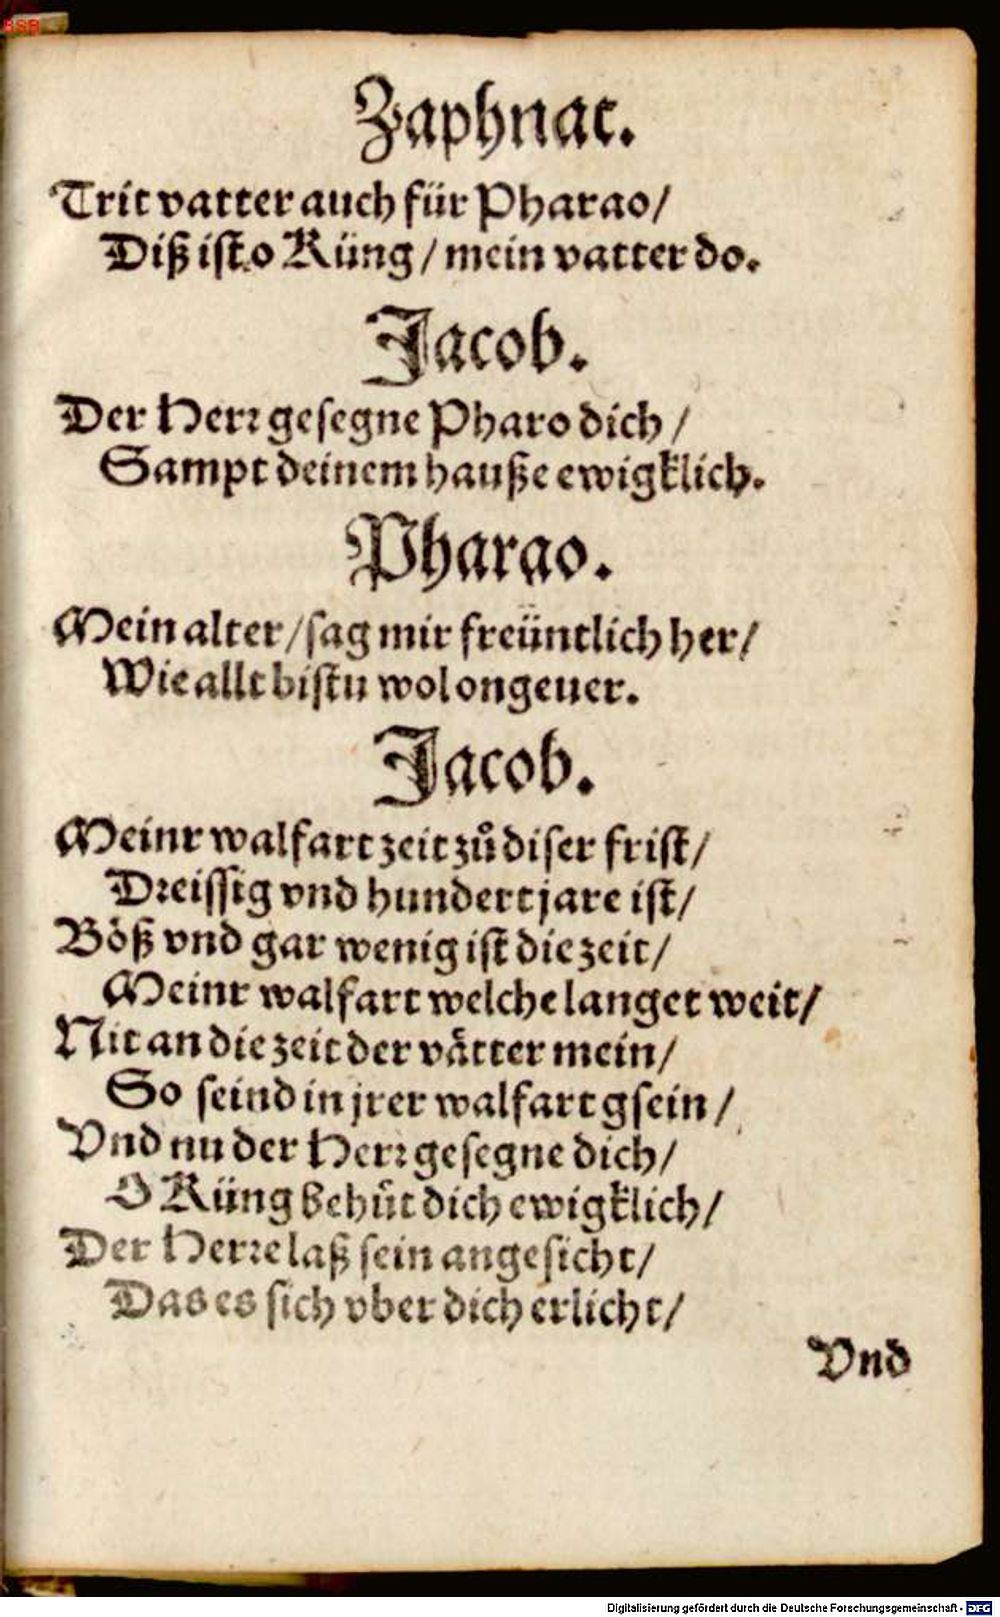 BSB
Zaphnat.
Trit vatter auch für Pharao/
Diß ist o Küng / mein vatter do.
Jacob.
Der Herr gesegne Pharo dich /
Sampt deinem hauße ewigklich.
Pharao.
Mein alter / sag mir freüntlich her/
Wie allt bistu wol ongeuer.
Jacob.
Meinr walfart zeit zů diser frist/
Dreissig vnd hundert jare ist/
Böß vnd gar wenig ist die zeit/
Meinr walfart welche langet weit/
Nit an die zeit der vätter mein/
So seind in jrer walfart gsein /
Vnd nu der Herr gesegne dich/
O Küng behüt dich ewigklich/
Der Herre laß sein angesicht/
Das es sich vber dich erlicht/
Vnd
Digitalisierung gefördert durch die Deutsche Forschungsgemeinschaft - DFG